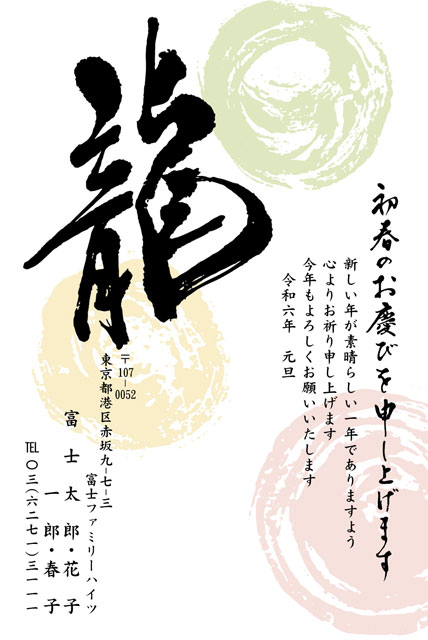 龍
初春のお慶びを申し上げます
新しい年が素晴らしい一年でありますよう
心よりお祈り申し上げます
今年もよろしくお願いいたします
令和六年　元旦
〒107-0052
東京都港区赤坂九-七-三
富士ファミリーハイツ
富士太郎・花子
一郎・春子
TEL〇三(六二七一)三一一一